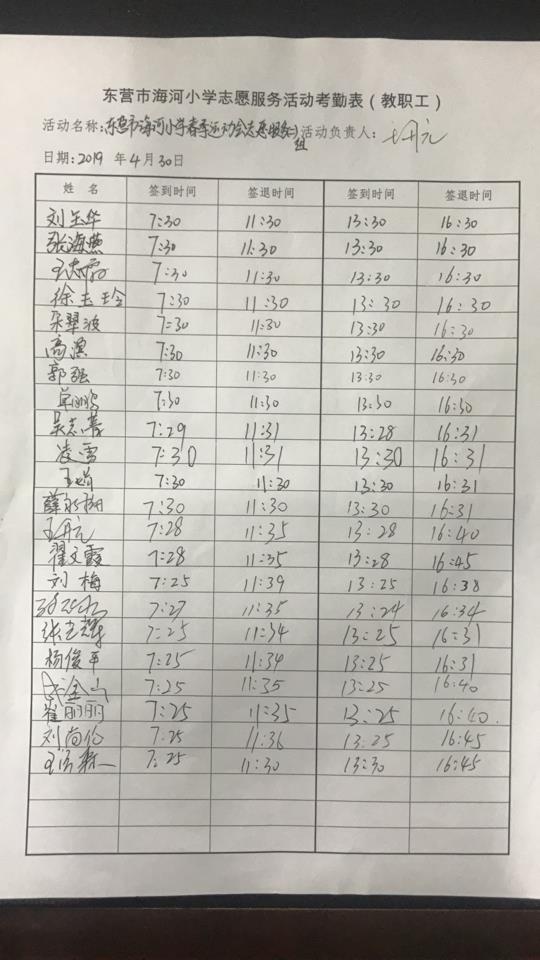 东营市海河小学志愿服务活动考勤表（教职工）
活动名称：东营市海河小学春季运动会志愿服务 组 活动负责人：王开元
日期：2019 年 4 月 30 日
姓 名 签到时间 签退时间 签到时间 签退时间
刘玉华 7:30 11:30 13:30 16:30
张海燕 7:30 11:30 13:30 16:30
7:30 11:30 13:30 16:30
徐玉玲 7:30 11:30 13:30 16:30
朱翠波 7:30 11:30 13:30 16:30
高滨 7:30 11:30 13:30 16:30
郭强 7:30 11:30 13:30 16:30
7:30 11:30 13:30 16:30
吴志善 7:29 11:31 13:28 16:31
凌雪 7:30 11:31 13:30 16:31
王娟 7:30 11:30 13:30 16:31
薛 7:30 11:30 13:30 16:31
王开元 7:28 11:35 13:28 16:40
翟文霞 7:28 11:35 13:28 16:45
刘梅 7:25 11:39 13:25 16:38
7:27 11:35 13:24 16:34
张玉辉 7:25 11:34 13:25 16:31
杨俊平 7:25 11:34 13:25 16:31
金山 7:25 11:35 13:25 16:40
崔丽丽 7:25 11:35 13:25 16:40.
刘尚伦 7:25 11:36 13:25 16:45
7:25 11:30 13:30 16:45